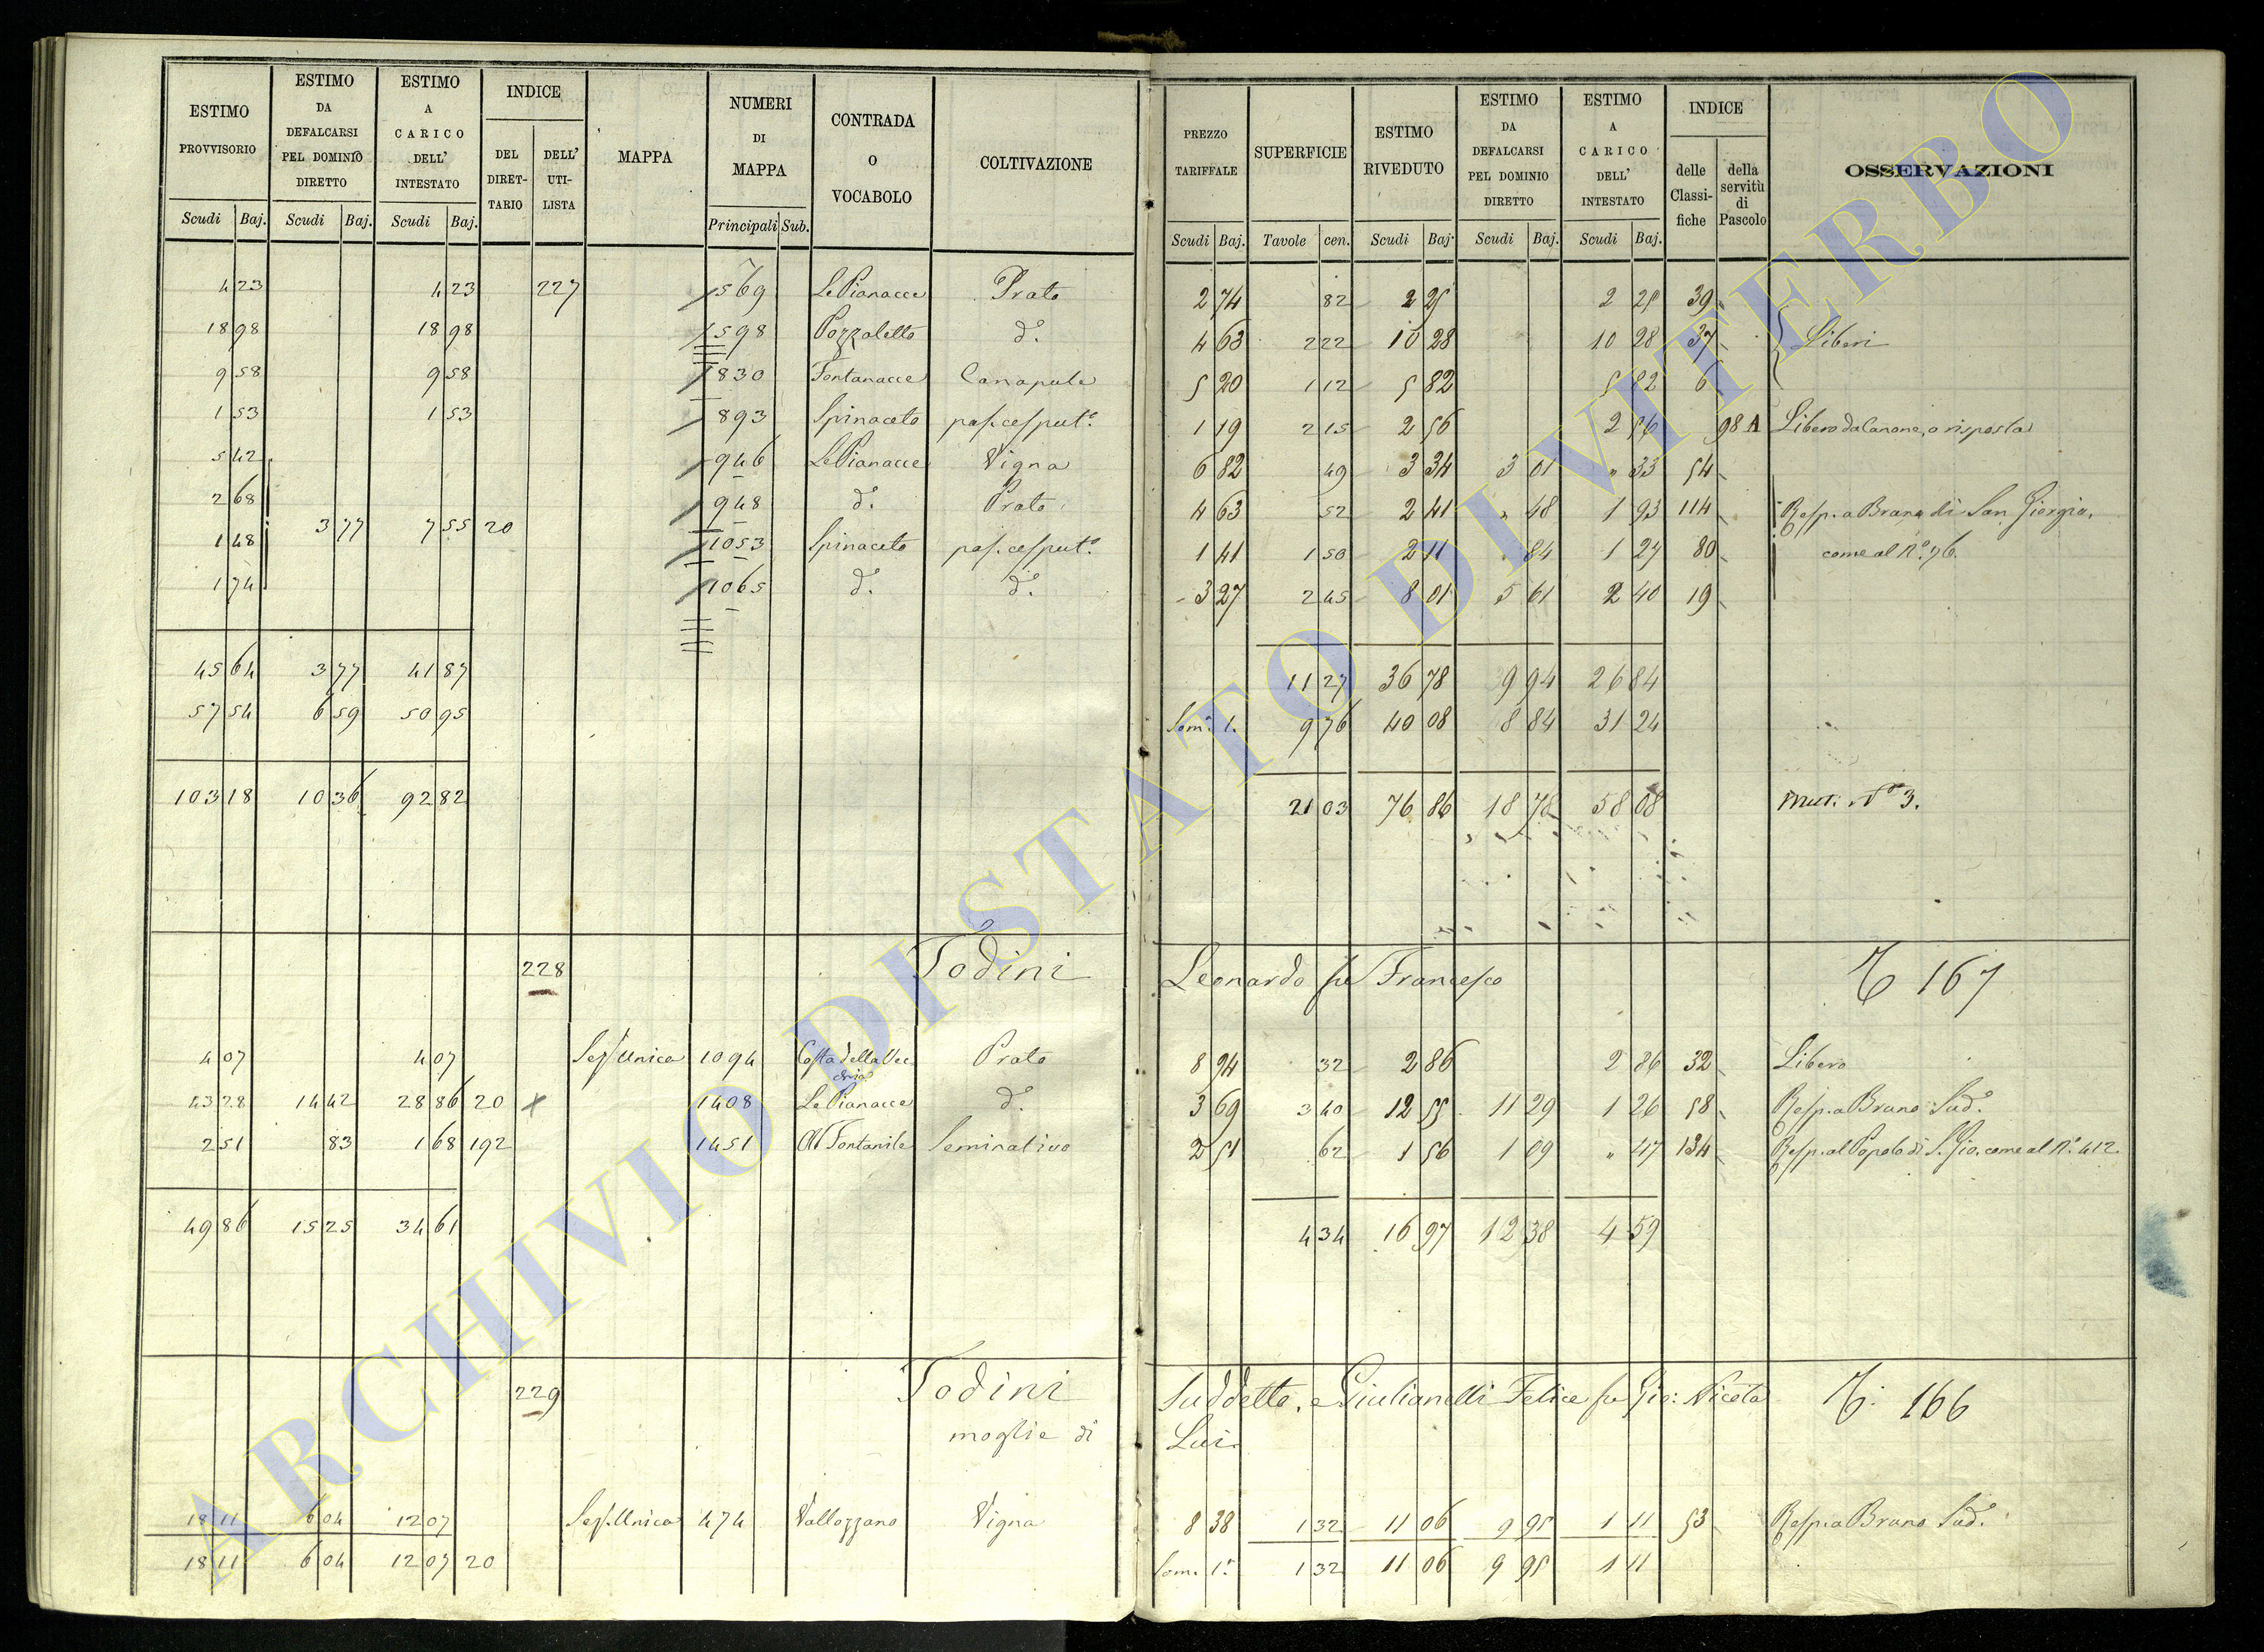 ESTIMO PROVVISORIO | ESTIMO DA DEFALCARSI PEL DOMINIO DIRETTO | ESTIMO A CARICO DELL' INTESTATO | INDICE | MAPPA | NUMERI DI MAPPA | CONTRADA O VOCABOLO | COLTIVAZIONE | PREZZO TARIFFALE | SUPERFICIE | ESTIMO RIVEDUTO | ESTIMO DA DEFALCARSI PEL DOMINIO DIRETTO | ESTIMO A CARICO DELL' INTESTATO | INDICE | OSSERVAZIONI
DEL DIRETTARIO | DELL' UTILISTA | delle Classifiche | della servitù di Pascolo
Scudi | Baj. | Scudi | Baj. | Scudi | Baj. | Principali | Sub. | Scudi | Baj. | Tavole | cen. | Scudi | Baj. | Scudi | Baj. | Scudi | Baj.
4 23 | 4 23 | 227 | 569 | Le Pianacce | Prato | 2 74 | 82 | 2 25 | 2 25 | 39
18 98 | 18 98 | 598 | Pozzoletto | d.º | 4 63 | 2 22 | 10 28 | 10 28 | 37 | Liberi
9 58 | 9 58 | 830 | Fontanacce | Canapule | 5 20 | 1 12 | 5 82 | 5 82 | 6
1 53 | 1 53 | 893 | Spinaceto | pas. cesput.º | 1 19 | 2 15 | 2 56 | 2 56 | 98 A | Libero da Canone, o risposta
5 42 | 946 | Le Pianacce | Vigna | 6 82 | 49 | 3 34 | 3 01 | " 33 | 54
2 68 | 948 | d.º | Prato | 4 63 | 52 | 2 41 | " 48 | 1 93 | 114 | Resp. a Brana di San Giorgio,
1 48 | 3 77 | 7 55 | 20 | 1053 | Spinaceto | pas. cesput.º | 1 41 | 1 50 | 2 11 | " 84 | 1 27 | 80 | come al Nº 76.
1 74 | 1065 | d.º | d.º | 3 27 | 2 45 | 8 01 | 5 61 | 2 40 | 19
45 64 | 3 77 | 41 87 | 11 27 | 36 78 | 9 94 | 26 84
57 54 | 6 59 | 50 95 | Som.ª 1. | 9 76 | 40 08 | 8 84 | 31 24
103 18 | 10 36 | 92 82 | 21 03 | 76 86 | 18 78 | 58 08 | Mut. Nº 3.
228 | Todini Leonardo fu Francesco | 167
4 07 | 4 07 | Sez. Unica | 1094 | Costa della Vecchia | Prato | 8 94 | 32 | 2 86 | 2 86 | 32 | Libero
43 28 | 14 42 | 28 86 | 20 | x | 1408 | Le Pianacce | d.º | 3 69 | 3 40 | 12 55 | 11 29 | 1 26 | 58 | Resp. a Brano Sud.º
2 51 | 83 | 1 68 | 192 | 1451 | Al Fontanile | Seminativo | 2 51 | 62 | 1 56 | 1 09 | " 47 | 134 | Resp. al Popolo di S. Gio. come al Nº 412.
49 86 | 15 25 | 34 61 | 4 34 | 16 97 | 12 38 | 4 59
229 | Todini Suddetto, e Giulianelli Felice fu Gio: Nicola | 166
moglie di Lui
18 11 | 6 04 | 12 07 | Sez. Unica | 474 | Vallozzano | Vigna | 8 38 | 1 32 | 11 06 | 9 95 | 1 11 | 53 | Resp. a Brano Sud.º
18 11 | 6 04 | 12 07 | 20 | Som. 1.ª | 1 32 | 11 06 | 9 95 | 1 11
ARCHIVIO DI STATO DI VITERBO